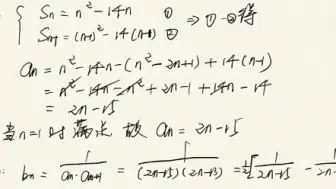 { Sn = n² - 14n ①
Sn-1 = (n-1)² - 14(n-1) ② ⇒ ①-②得
an = n² - 14n - (n² - 2n + 1) + 14(n-1)
= n² - 14n - n² + 2n - 1 + 14n - 14
= 2n - 15
当n=1时满足 故 an = 2n - 15
: bn = 1/(an·an+1) = 1/((2n-15)(2n-13)) = ½[1/(2n-15) - 1/(2n-